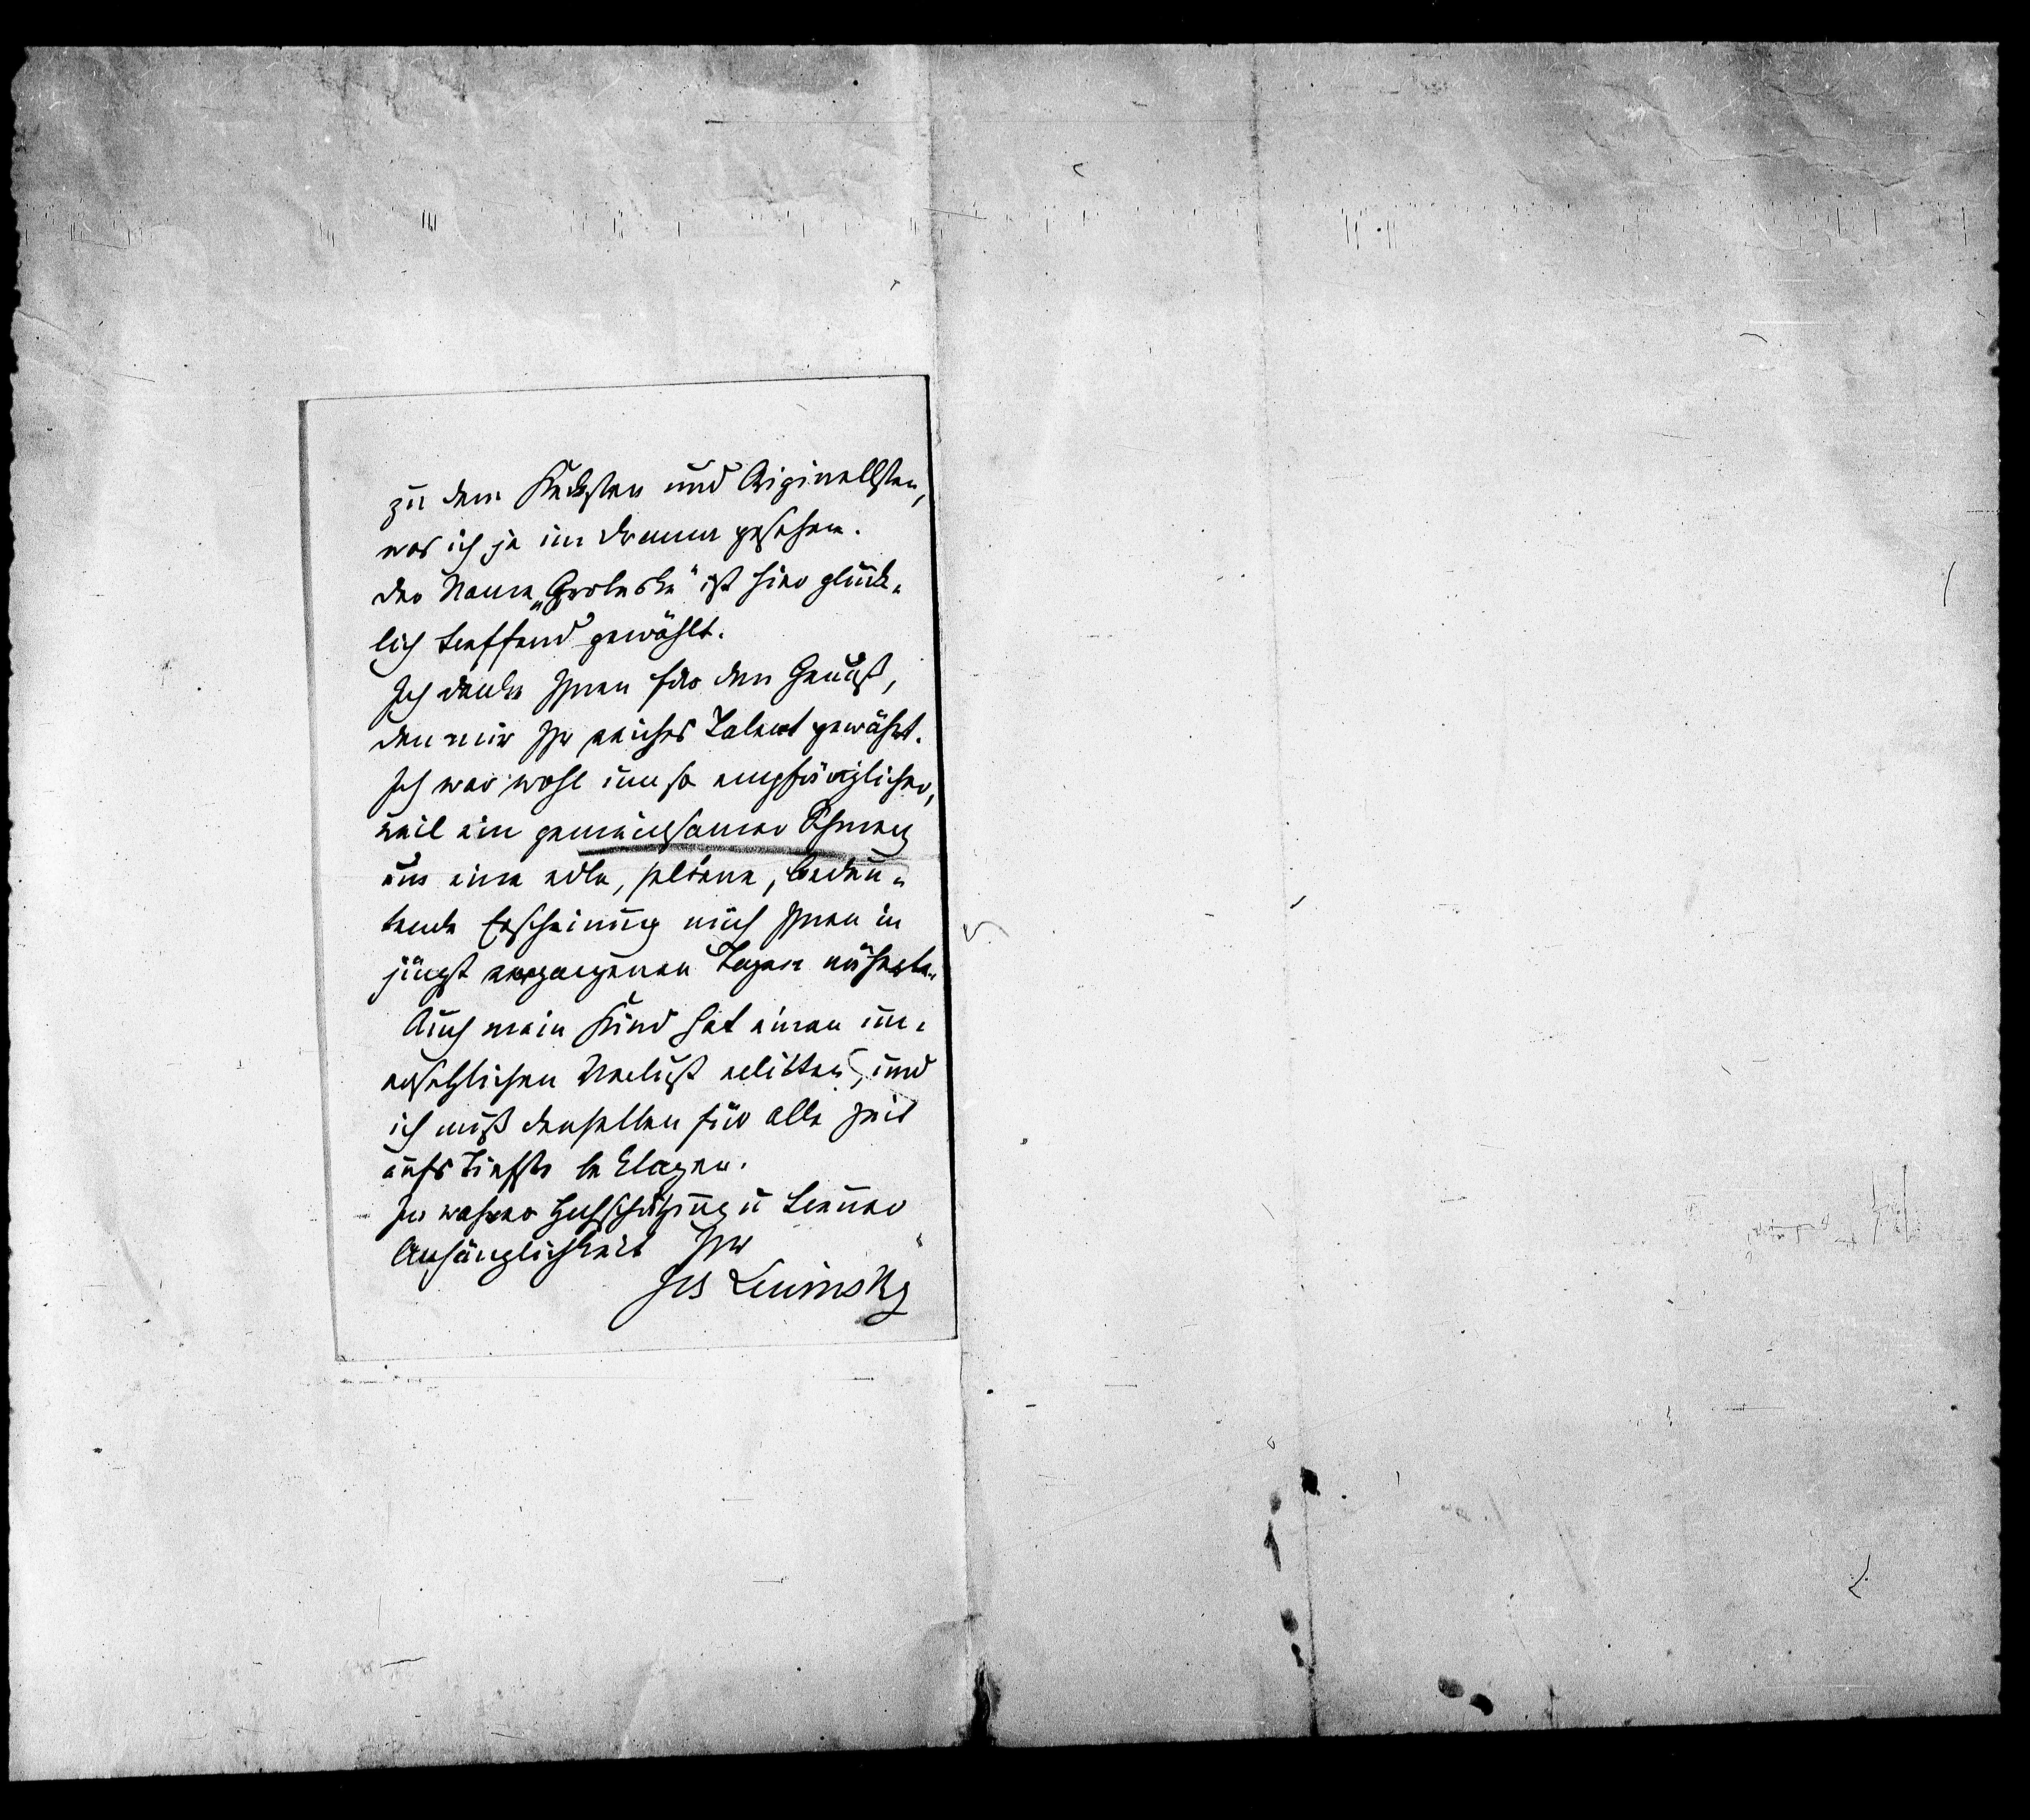 zu dem Kecksten und Originellsten,
was ich je im Drama gesehen.
Der Name „Groteske" ist hier glück-
lich treffend gewählt.
Ich danke Ihnen für den Genuß,
den mir Ihr reiches Talent gewährt.
Ich war wohl um so empfänglicher,
weil ein gemeinsamer Schmerz
um eine edle, seltene, bedeu-
tende Erscheinung mich Ihnen in
jüngst vergangenen Tagen näherte.
Auch mein Kind hat einen un-
ersetzlichen Verlust erlitten, und
ich muß denselben für alle Zeit
aufs Tiefste beklagen.
In wahrer Hochschätzung u treuer
Anhänglichkeit Ihr
Jos Lewinsky